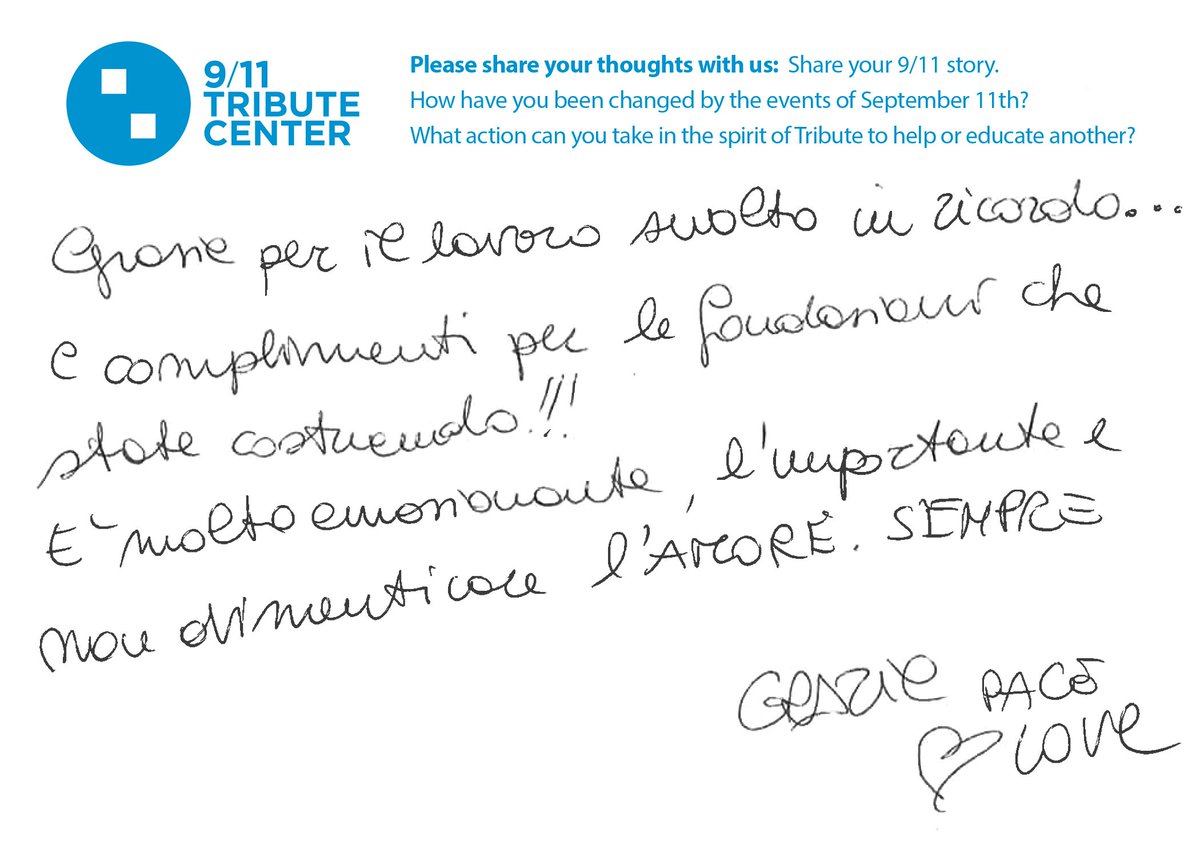 9/11
TRIBUTE
CENTER
Please share your thoughts with us: Share your 9/11 story.
How have you been changed by the events of September 11th?
What action can you take in the spirit of Tribute to help or educate another?
Grazie per il lavoro svolto in ricordo...
e complimenti per le fondazioni che
state costruendo!!!
E' molto emozionante, l'importante e
non dimenticare l'AMORE. SEMPRE
GRAZIE PACE
LOVE